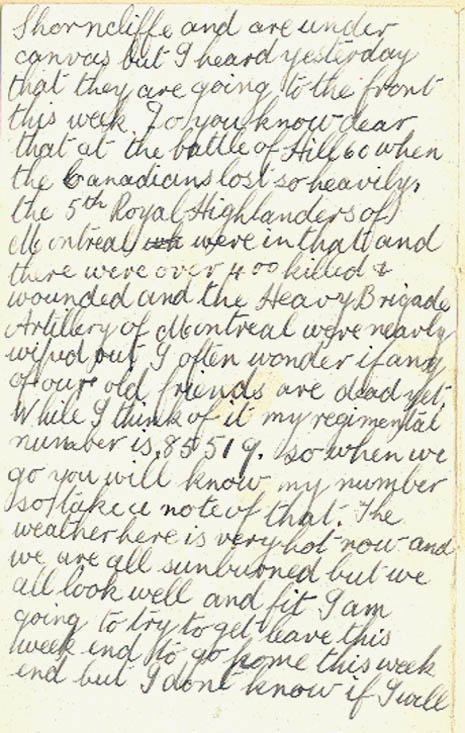 Shorncliffe and are under
canvas but I heard yesterday
that they are going to the front
this week. Do you know dear
that at the battle of Hill 60 when
the Canadians lost so heavily,
the 5th Royal Highlanders of
Montreal were in that and
there were over 400 killed &
wounded and the Heavy Brigade
Artillery of Montreal were nearly
wiped out. I often wonder if any
of our old friends are dead yet.
While I think of it my regimental
number is 85519. so when we
go you will know my number
so take a note of that. The
weather here is very hot now and
we are all sunburned but we
all look well and fit I am
going to try to get leave this
week end to go home this week
end but I dont know if I will